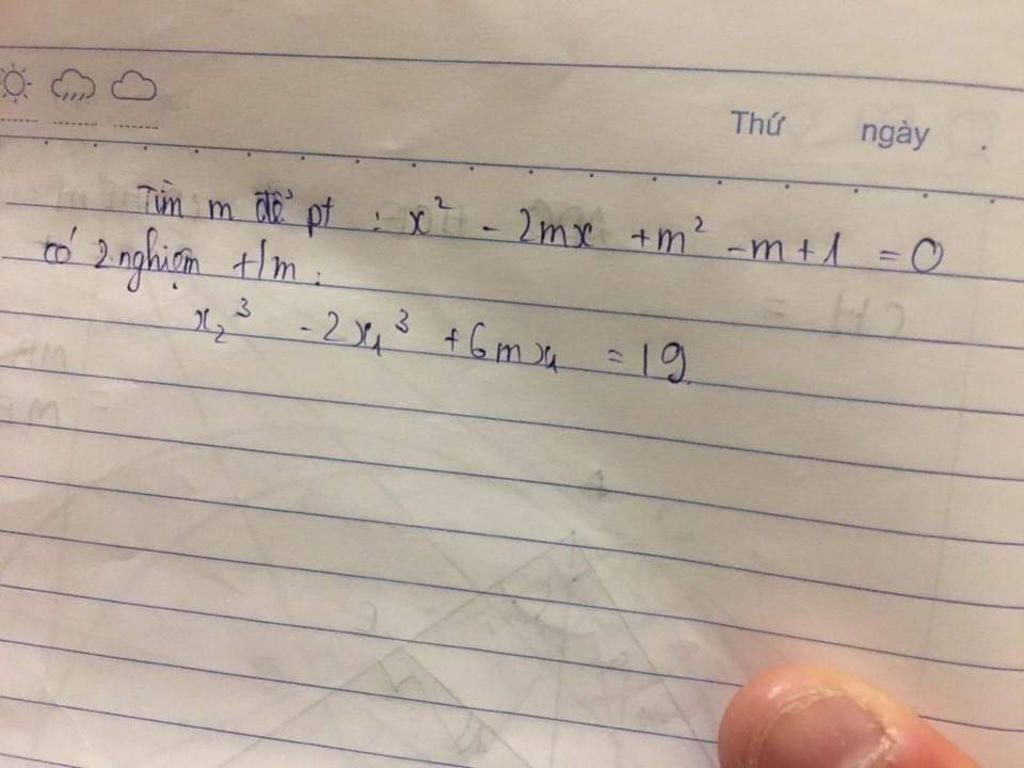 Thứ ngày .
Tìm m để pt : x² - 2mx + m² - m + 1 = 0
có 2 nghiệm t/m :
x₂³ - 2x₁³ + 6mx₁ = 19